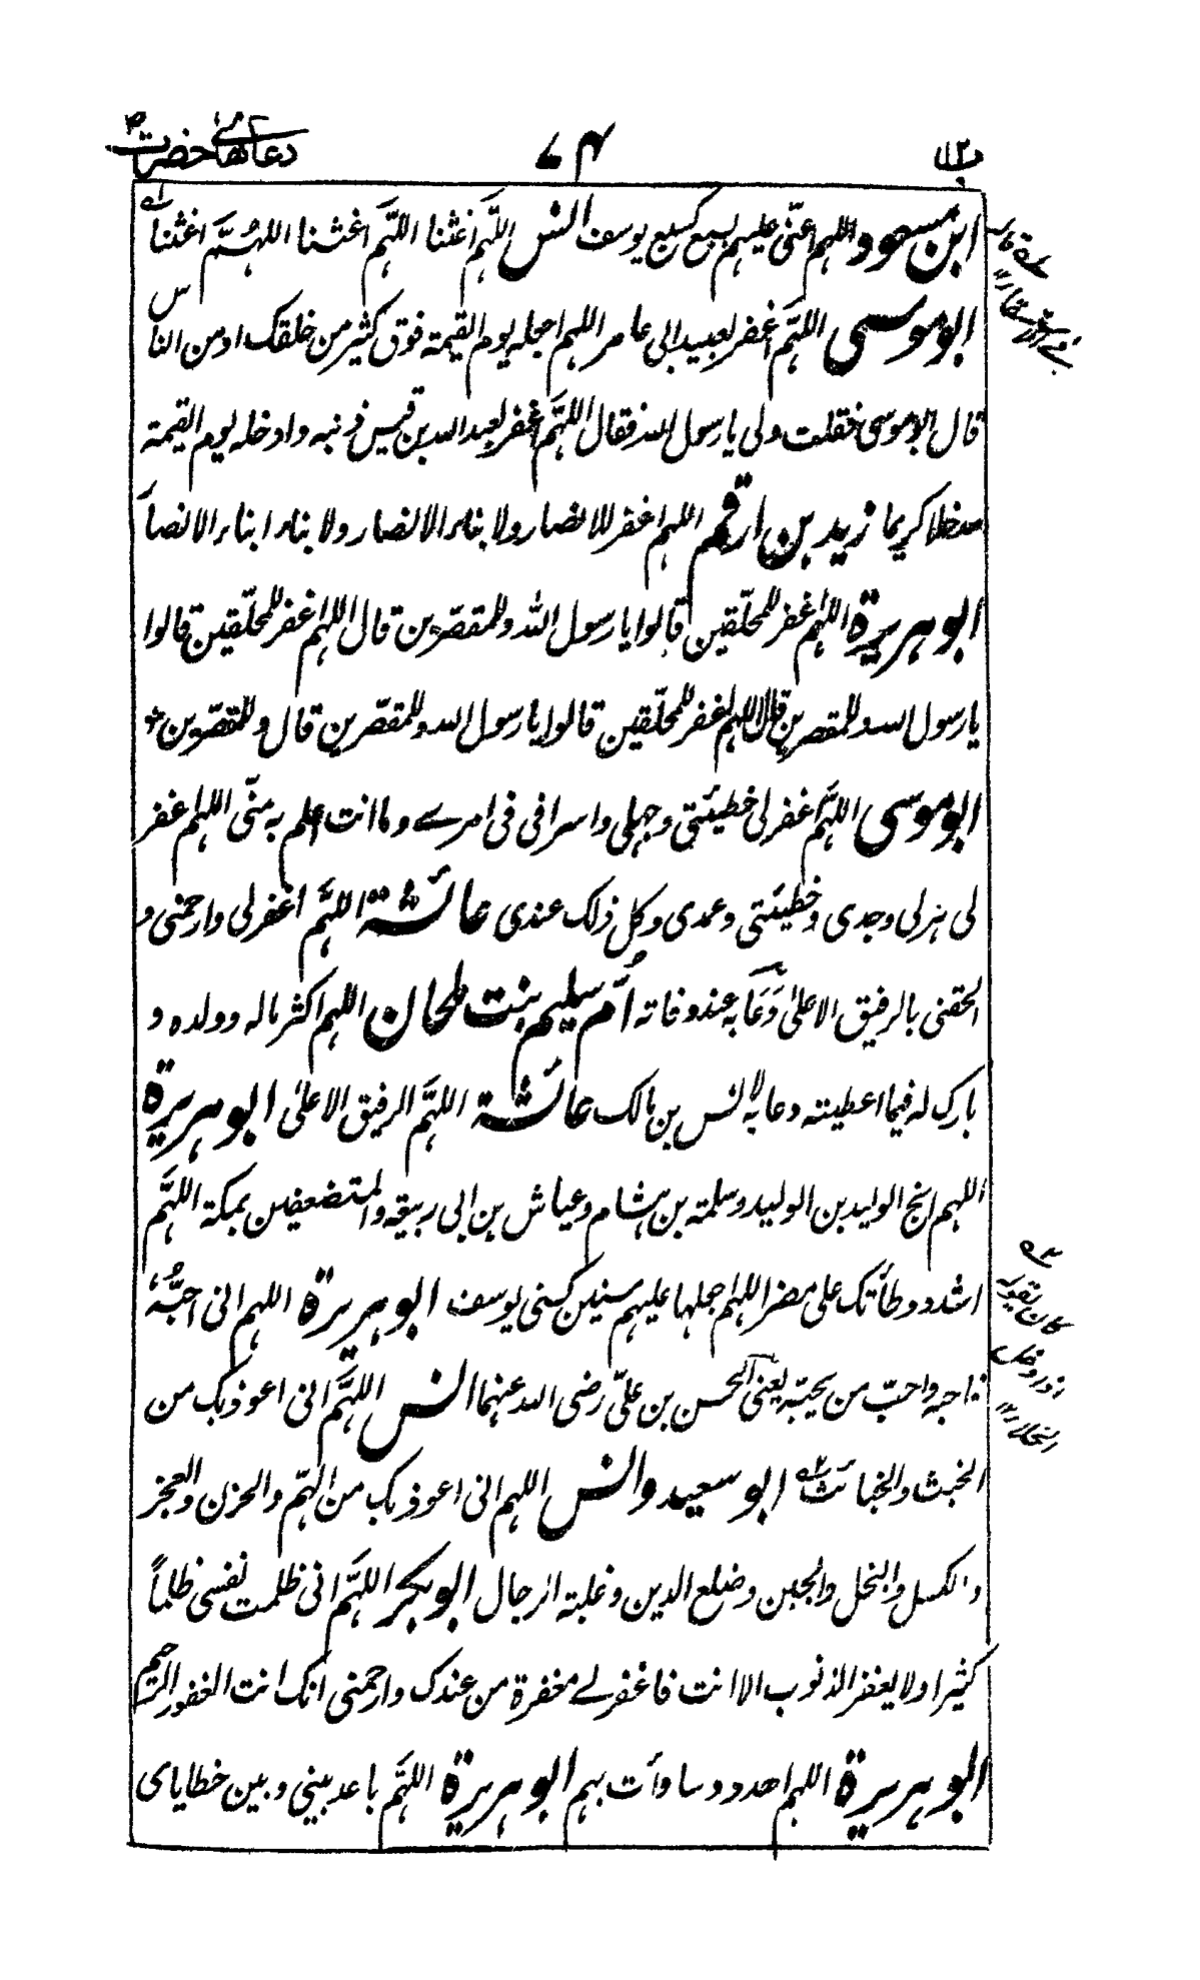 باب ۱۲
۷۴
دعاهائے حضرت
ابن مسعود اللهم اعنّی علیهم بسبع کسبع یوسف انس اللّهم اغثنا اللّهم اغثنا اللهمَّ اغثنا
ابو موسی اللّهم اغفر لعبید ابی عامر اللهم اجعله یوم القیمة فوق کثیر من خلقک او من الناس
قال ابو موسی فقلت ولی یا رسول الله فقال اللّهم اغفر لعبد الله بن قیس ذنبه وادخله یوم القیمة
مدخلا کریما زید بن ارقم اللهم اغفر للانصار ولابناء الانصار ولابناء ابناء الانصار
ابو هریرة اللهم اغفر للمحلّقین قالوا یا رسول الله وللمقصّرین قال اللهم اغفر للمحلّقین قالوا
یا رسول الله وللمقصرین قال اللهم اغفر للمحلّقین قالوا یا رسول الله وللمقصّرین قال وللمقصّرین
ابو موسی اللّهم اغفر لی خطیئتی وجهلی واسرافی فی امرے وما انت اعلم به منّی اللهم اغفر
لی هزلی وجدی وخطیئتی وعمدی وکل ذلک عندی عائشة اللهمَّ اغفر لی وارحمنی و
الحقنی بالرفیق الاعلیٰ دَعَا بِهٖ عند وفاته اُمّ سلیم بنت ملحان اللهم اکثر ماله وولده و
بارک له فیما اعطیته دعا به لانس بن مالک عائشة اللهمَّ الرفیق الاعلیٰ ابو هریرة
اللهم انج الولید بن الولید وسلمة بن هشام وعیاش بن ابی ربیعة والمستضعفین بمکة اللهمَّ
اشدد وطأتک علی مضر اللهم اجعلها علیهم سنین کسنی یوسف ابو هریرة اللهم انی احبُّهٗ
فاحبه واحبّ من یحبّه یعنی الحسن بن علیّ رضی الله عنهما انس اللهمَّ انی اعوذ بک من
الخبث والخبائث ابو سعید وانس اللهم انی اعوذ بک من الهمّ والحزن والعجز
والکسل والبخل والجبن وضلع الدین وغلبة الرجال ابو بکر اللهمَّ انی ظلمت نفسی ظلماً
کثیرا ولا یغفر الذنوب الا انت فاغفر لے مغفرة من عندک وارحمنی انک انت الغفور الرحیم
ابو هریرة اللهم اهد دوسا وأت بهم ابو هریرة اللهمَّ باعد بینی وبین خطایای
کان یقوله
اذا دخل
الخلاء